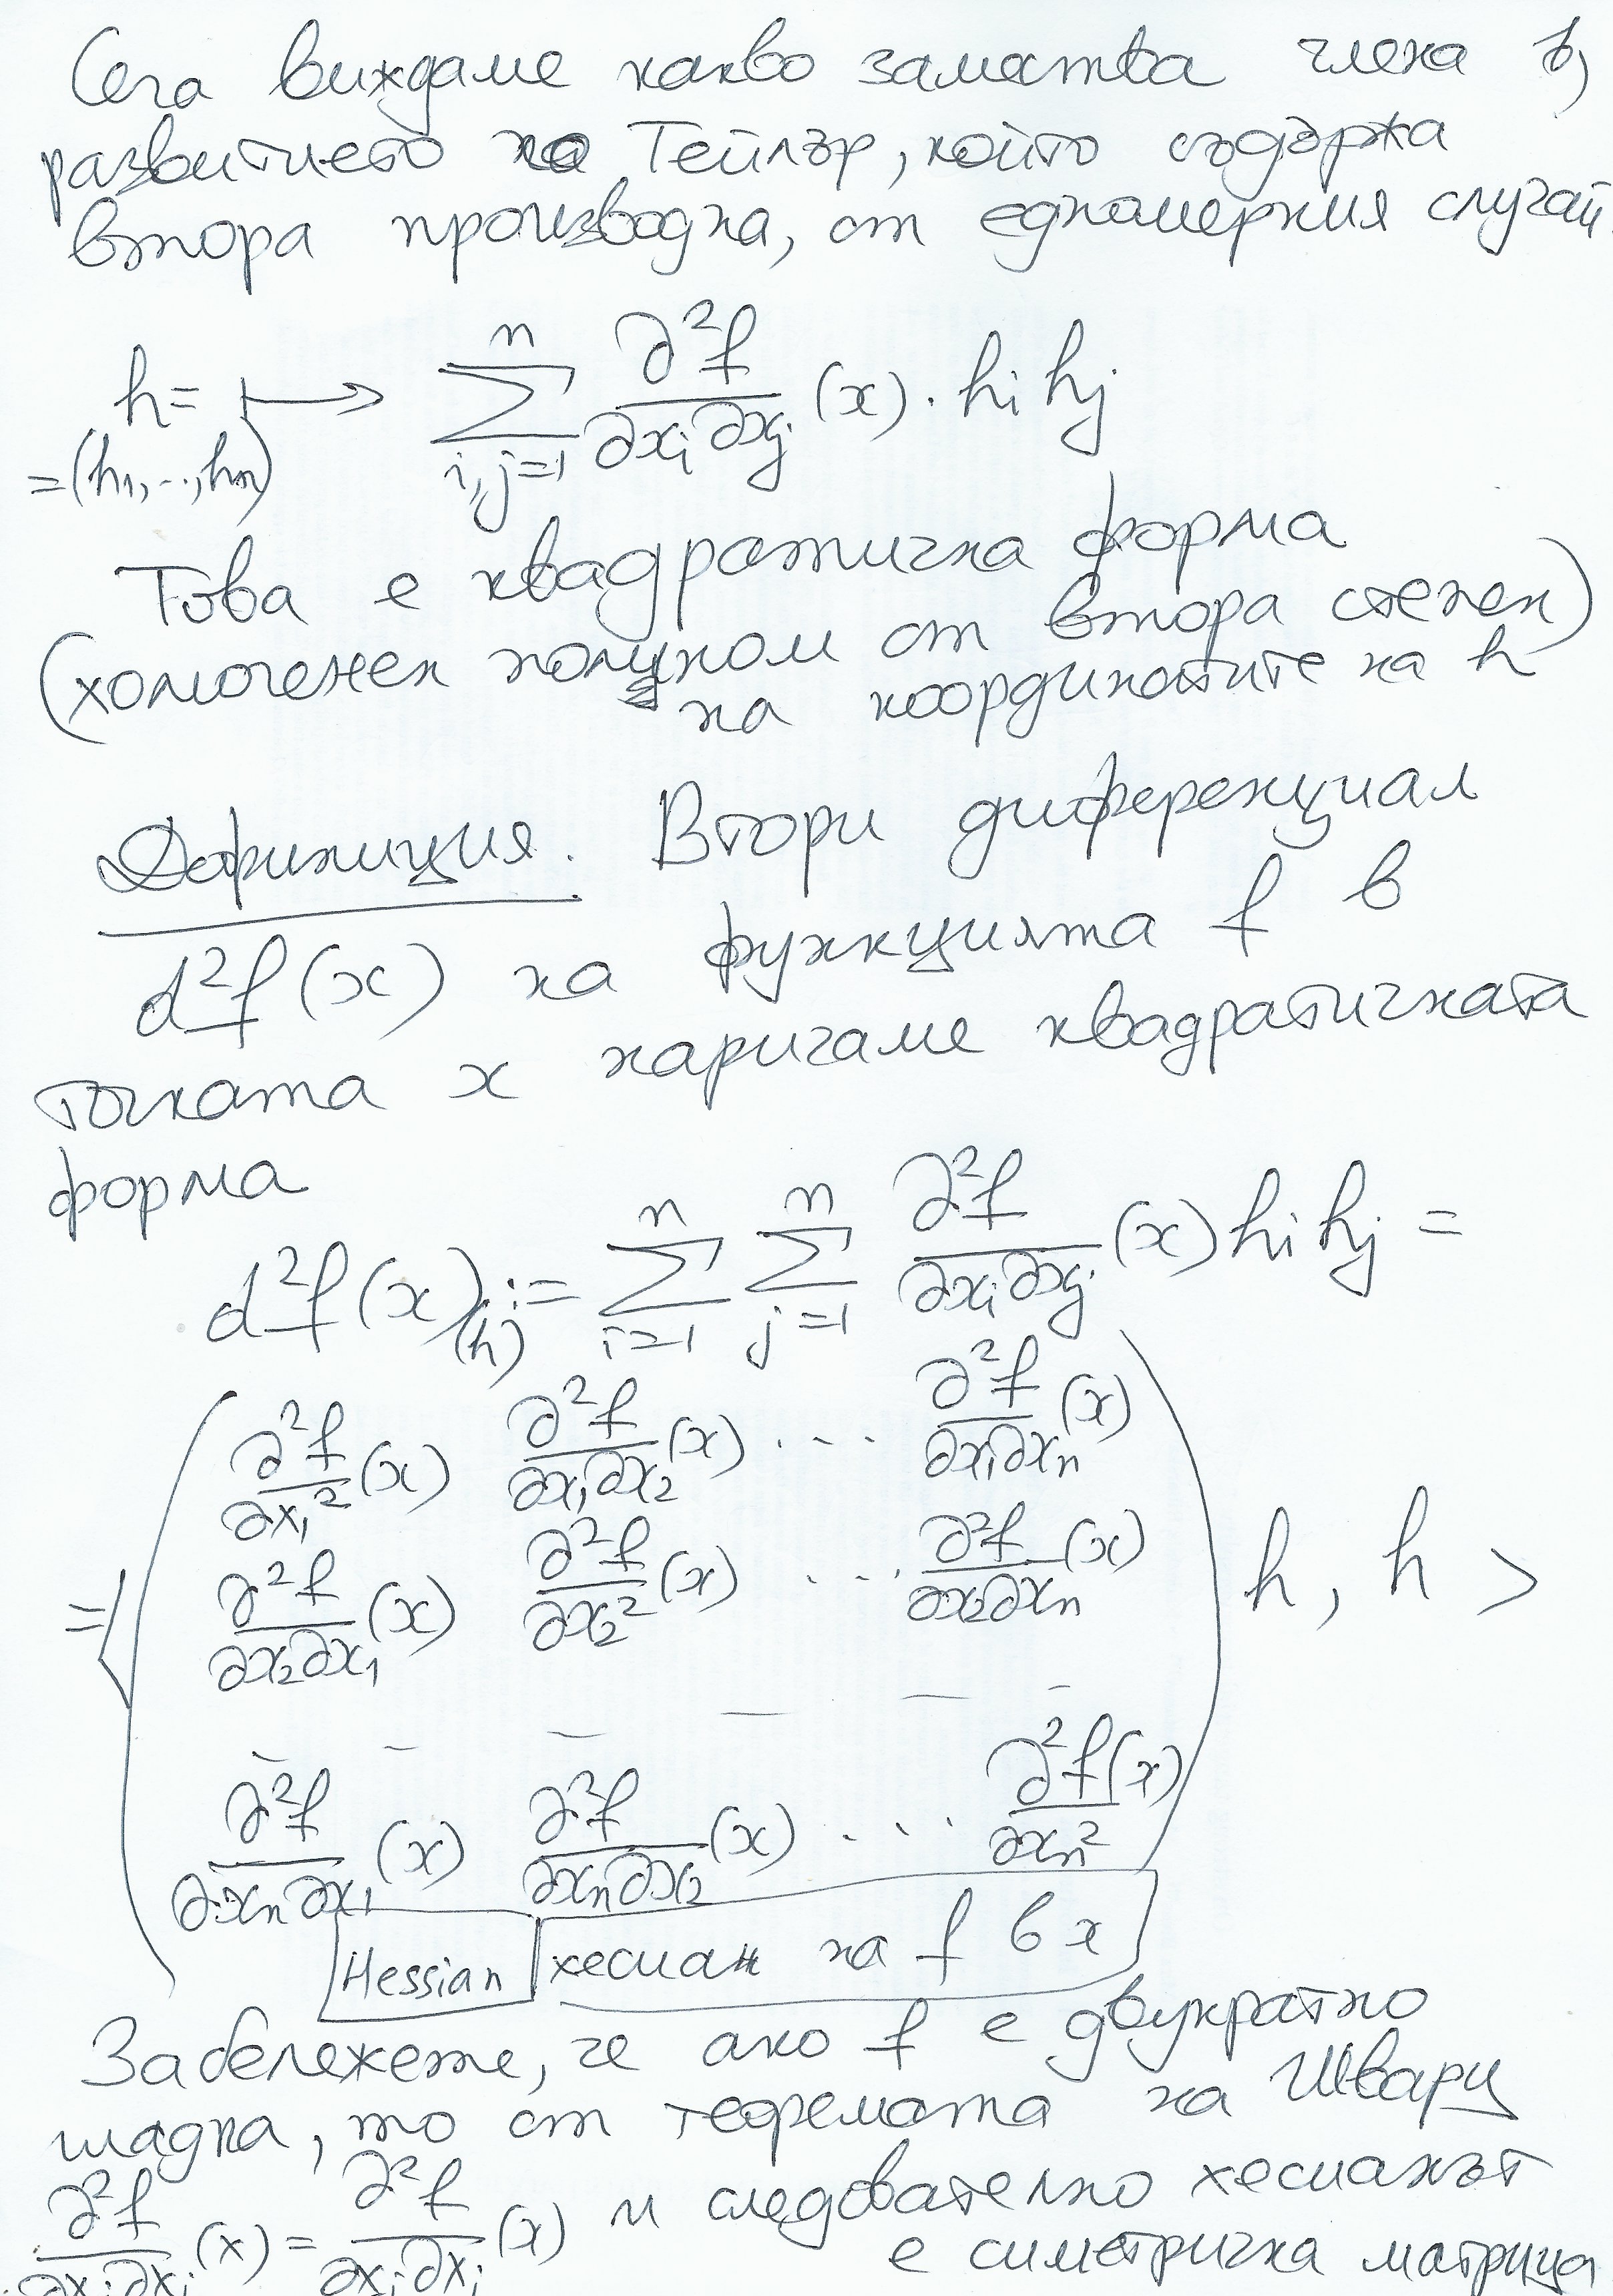 Сега виждаме какво замества члена в
развитието на Тейлър, който съдържа
втора производна, от едномерния случай.
h = ⟼ ∑_{i,j=1}^{n} ∂²f/∂xᵢ∂xⱼ (x) . hᵢ hⱼ
= (h₁, .., hₙ)
Това е квадратична форма
(хомогенен полином от втора степен)
на координатите на h
Дефиниция. Втори диференциал
d²f(x) на функцията f в
точката x наричаме квадратичната
форма
d²f(x)(h) := ∑_{i=1}^{n} ∑_{j=1}^{n} ∂²f/∂xᵢ∂xⱼ (x) hᵢ hⱼ =
∂²f/∂x₁² (x) ∂²f/∂x₁∂x₂ (x) ... ∂²f/∂x₁∂xₙ (x)
= < ∂²f/∂x₂∂x₁ (x) ∂²f/∂x₂² (x) ... ∂²f/∂x₂∂xₙ (x) h, h >
∂²f/∂xₙ∂x₁ (x) ∂²f/∂xₙ∂x₂ (x) ... ∂²f(x)/∂xₙ²
Hessian хесиан на f в x
Забележете, че ако f е двукратно
гладка, то от теоремата на Шварц
∂²f/∂xᵢ∂xⱼ (x) = ∂²f/∂xⱼ∂xᵢ (x) и следователно хесианът
е симетрична матрица